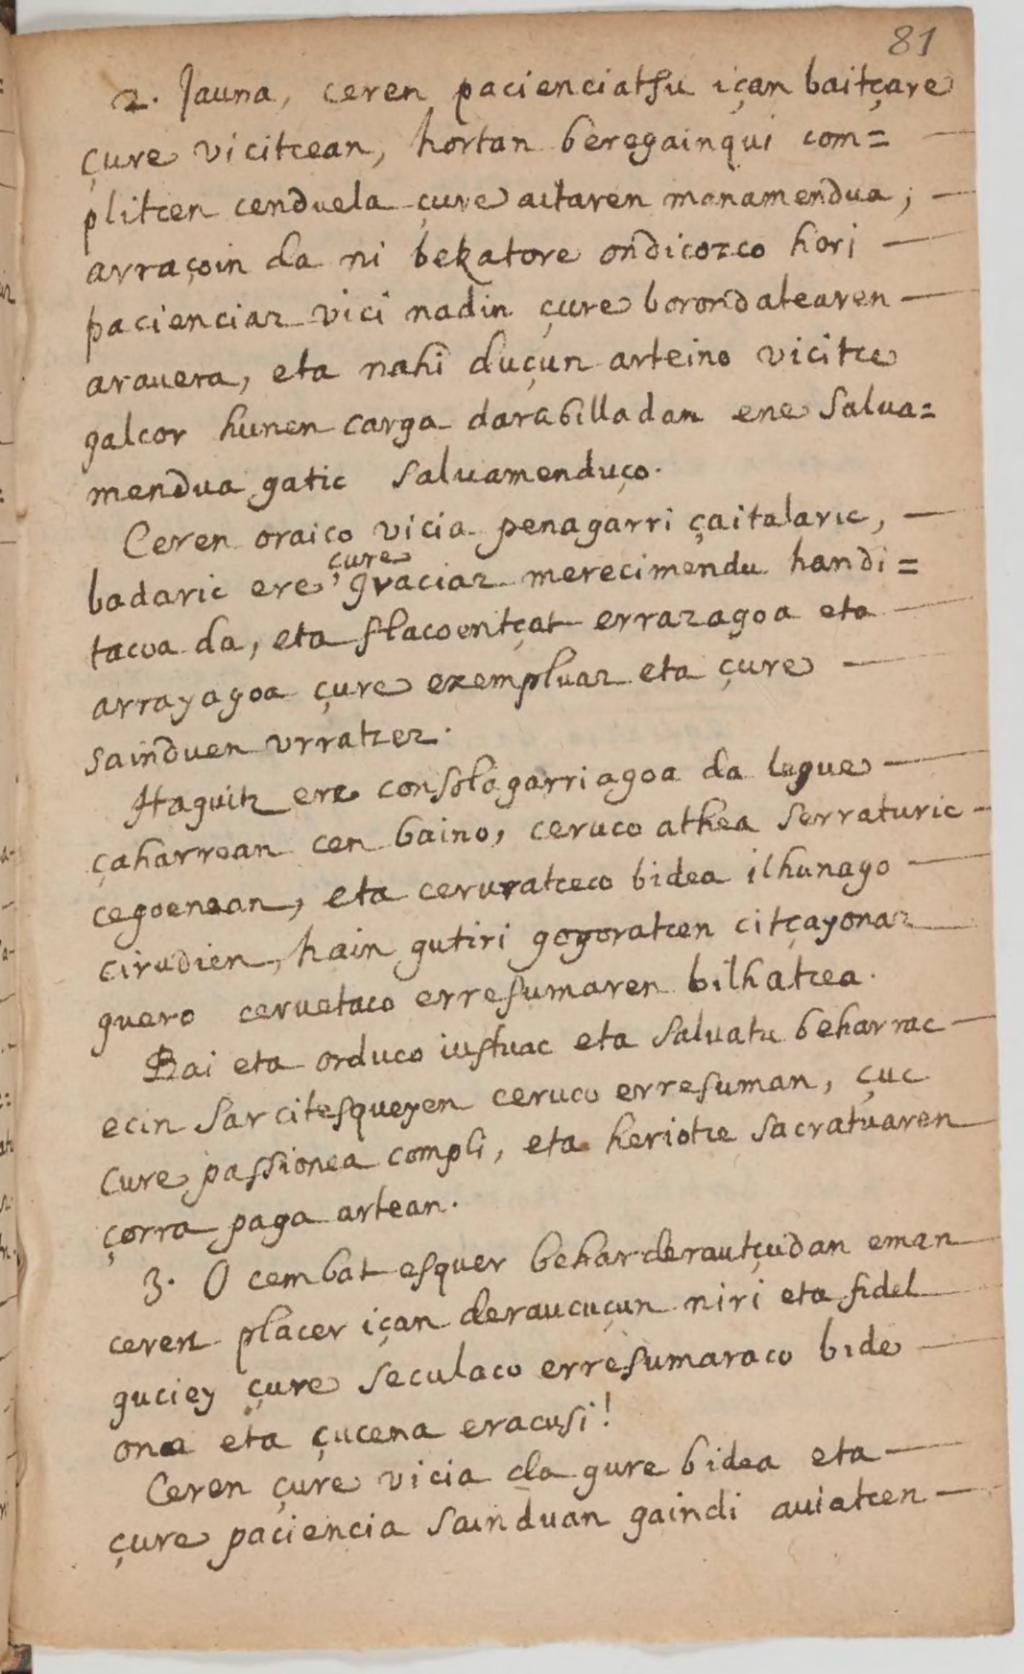 81
2. Jauna, ceren pacienciatsu içan baitçare
çure vicitcean, hortan beregainqui com=
plitcen cenduela çure aitaren manamendua; —
arraçoin da ni bekatore ondicozco hori —
pacienciaz vici nadin çure borondatearen —
arauera, eta nahi duçun arteino vicitce
galcor hunen carga darabilladan ene salua=
mendua gatic saluamenduço.
Ceren oraico vicia penagarri çaitalaric, —
çure
badaric ere, graciaz merecimendu handi=
tacoa da, eta flacoentçat errazagoa eta —
arrayagoa çure exempluaz eta çure —
sainduen urratzez.
Haguitz ere consolagarriagoa da legue —
çaharroan cen baino, ceruco athea serraturic —
cegoenean, eta ceruratceco bidea ilhunago —
cirudien, hain gutiri gogoratcen citçayonaz
guero ceruetaco erresumaren bilhatcea.
Bai eta orduco iustuac eta saluatu beharrac —
ecin sar citesqueyen ceruco erresuman, çuc
çure passionea compli, eta heriotce sacratuaren
çorra paga artean.
3. O cembat esquer behar derautçudan eman
ceren placer içan deraucuçun niri eta fidel
guciey çure seculaco erresumaraco bide —
ona eta çucena eracusi!
Ceren çure vicia da gure bidea eta —
çure paciencia sainduan gaindi auiatcen —